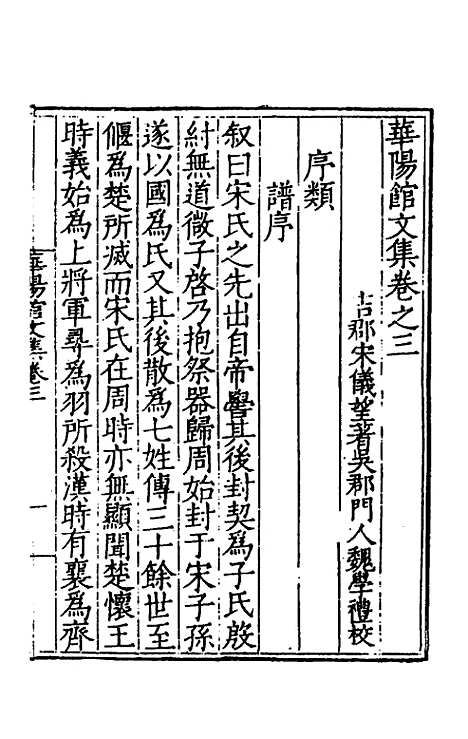 華陽館文集卷之三
吉郡宋儀望著吳郡門人魏學禮校
序類
譜序
叙曰宋氏之先出自帝嚳其後封契爲子氏殷
紂無道微子啓乃抱祭器歸周始封于宋子孫
遂以國爲氏又其後散爲七姓傳三十餘世至
偃爲楚所滅而宋氏在周時亦無顯聞楚懷王
時義始爲上將軍尋爲羽所殺漢時有襄爲齊
華陽館文集卷三
一